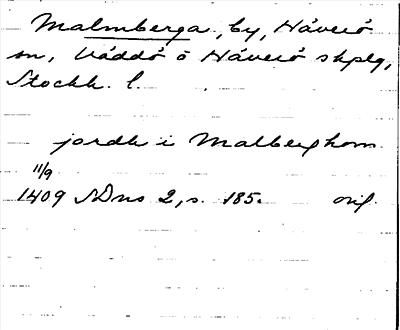 Malmberga, by, Häverö
sn, Väddö o Häverö skplg,
Stockh. l.
jordh i Malberghom
11/9
1409 SDns 2, s. 185. orig.